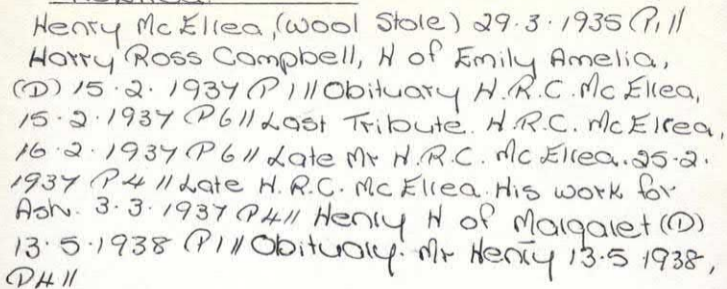 Henry McElrea, (Wool Stole) 29.3.1935 P.1 //
Harry Ross Campbell, H of Emily Amelia,
(D) 15.2.1937 P1 // Obituary H.R.C. McElrea,
15.2.1937 P6 // Last Tribute. H.R.C. McElrea,
16.2.1937 P6 // Late Mr H.R.C. McElrea. 25.2.
1937 P4 // Late H.R.C. McElrea. His work for
Ash. 3.3.1937 P4 // Henry H of Margaret (D)
13.5.1938 P1 // Obituary. Mr Henry 13.5 1938,
P4 //